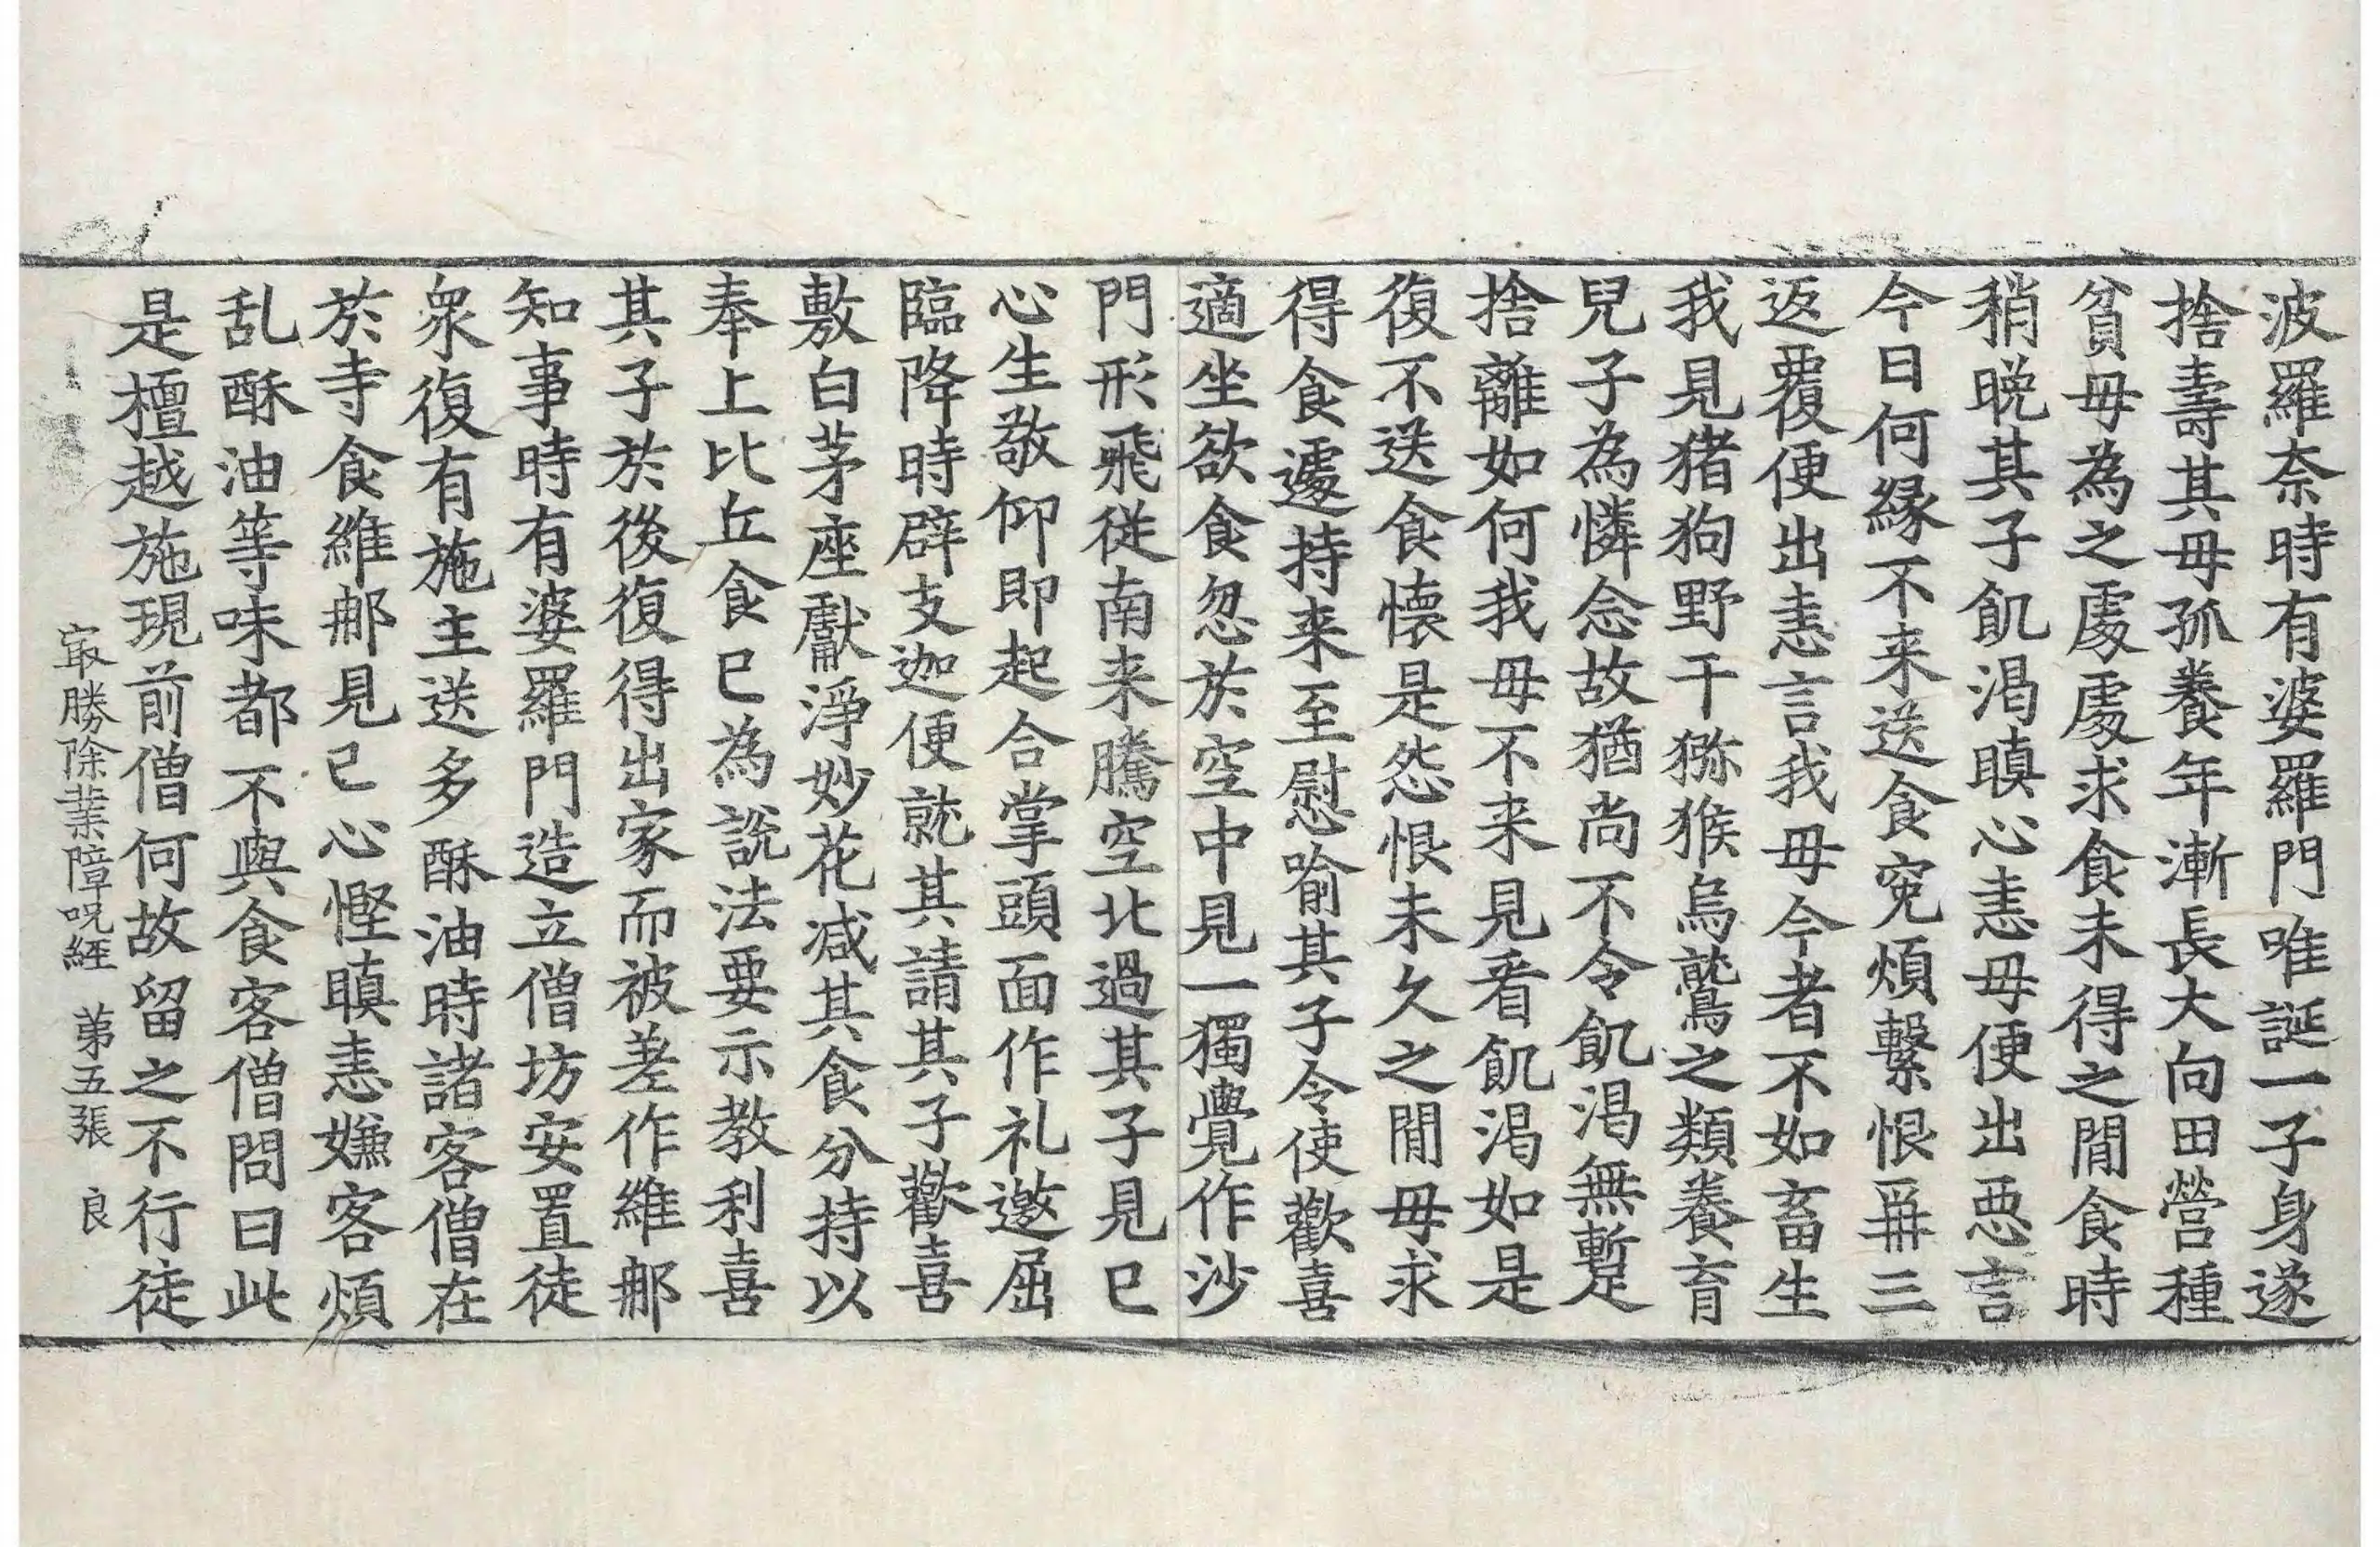 波羅奈時有婆羅門唯誕一子身遂
捨壽其母孤養年漸長大向田營種
貧母為之處處求食未得之間食時
稍晚其子飢渴瞋心恚母便出惡言
今日何緣不来送食寃煩繫恨再三
返覆便出恚言我母今者不如畜生
我見猪狗野干獼猴烏鷲之類養育
兒子為憐念故猶尚不令飢渴無暫
捨離如何我母不来見看飢渴如是
復不送食懷是怨恨未久之間母求
得食遽持来至慰喻其子令使歡喜
適坐欲食忽於空中見一獨覺作沙
門形飛從南来騰空北過其子見已
心生敬仰即起合掌頭面作礼邀屈
臨降時辟支迦便就其請其子歡喜
敷白茅座獻淨妙花減其食分持以
奉上比丘食已為說法要示教利喜
其子於後復得出家而被差作維那
知事時有婆羅門造立僧坊安置徒
衆復有施主送多酥油時諸客僧在
於寺食維那見已心慳瞋恚嫌客煩
乱酥油等味都不與食客僧問曰此
是檀越施現前僧何故留之不行徒
㝡勝除業障呪經 苐五張 良